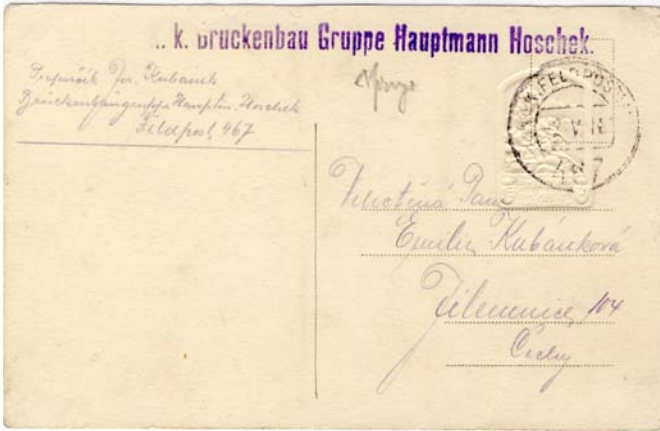 . k. Bruckenbau Gruppe Hauptmann Hoschek.
Praporčík Jos. Kubánek
Brückenbaugruppe Hauptm. Hoschek
Feldpost 467
K.u.K. FELDPOST
V. 18
Velectěná Paní
Emilie Kubánková
Jilemnice 104
Čechy